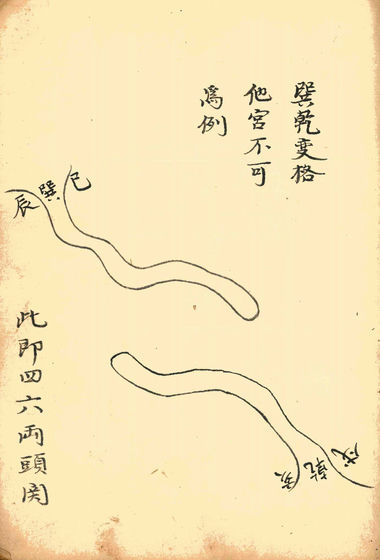 巽乾变格
他宫不可
為例
巳
巽
辰
此即四六両頭関
戌
乾
亥